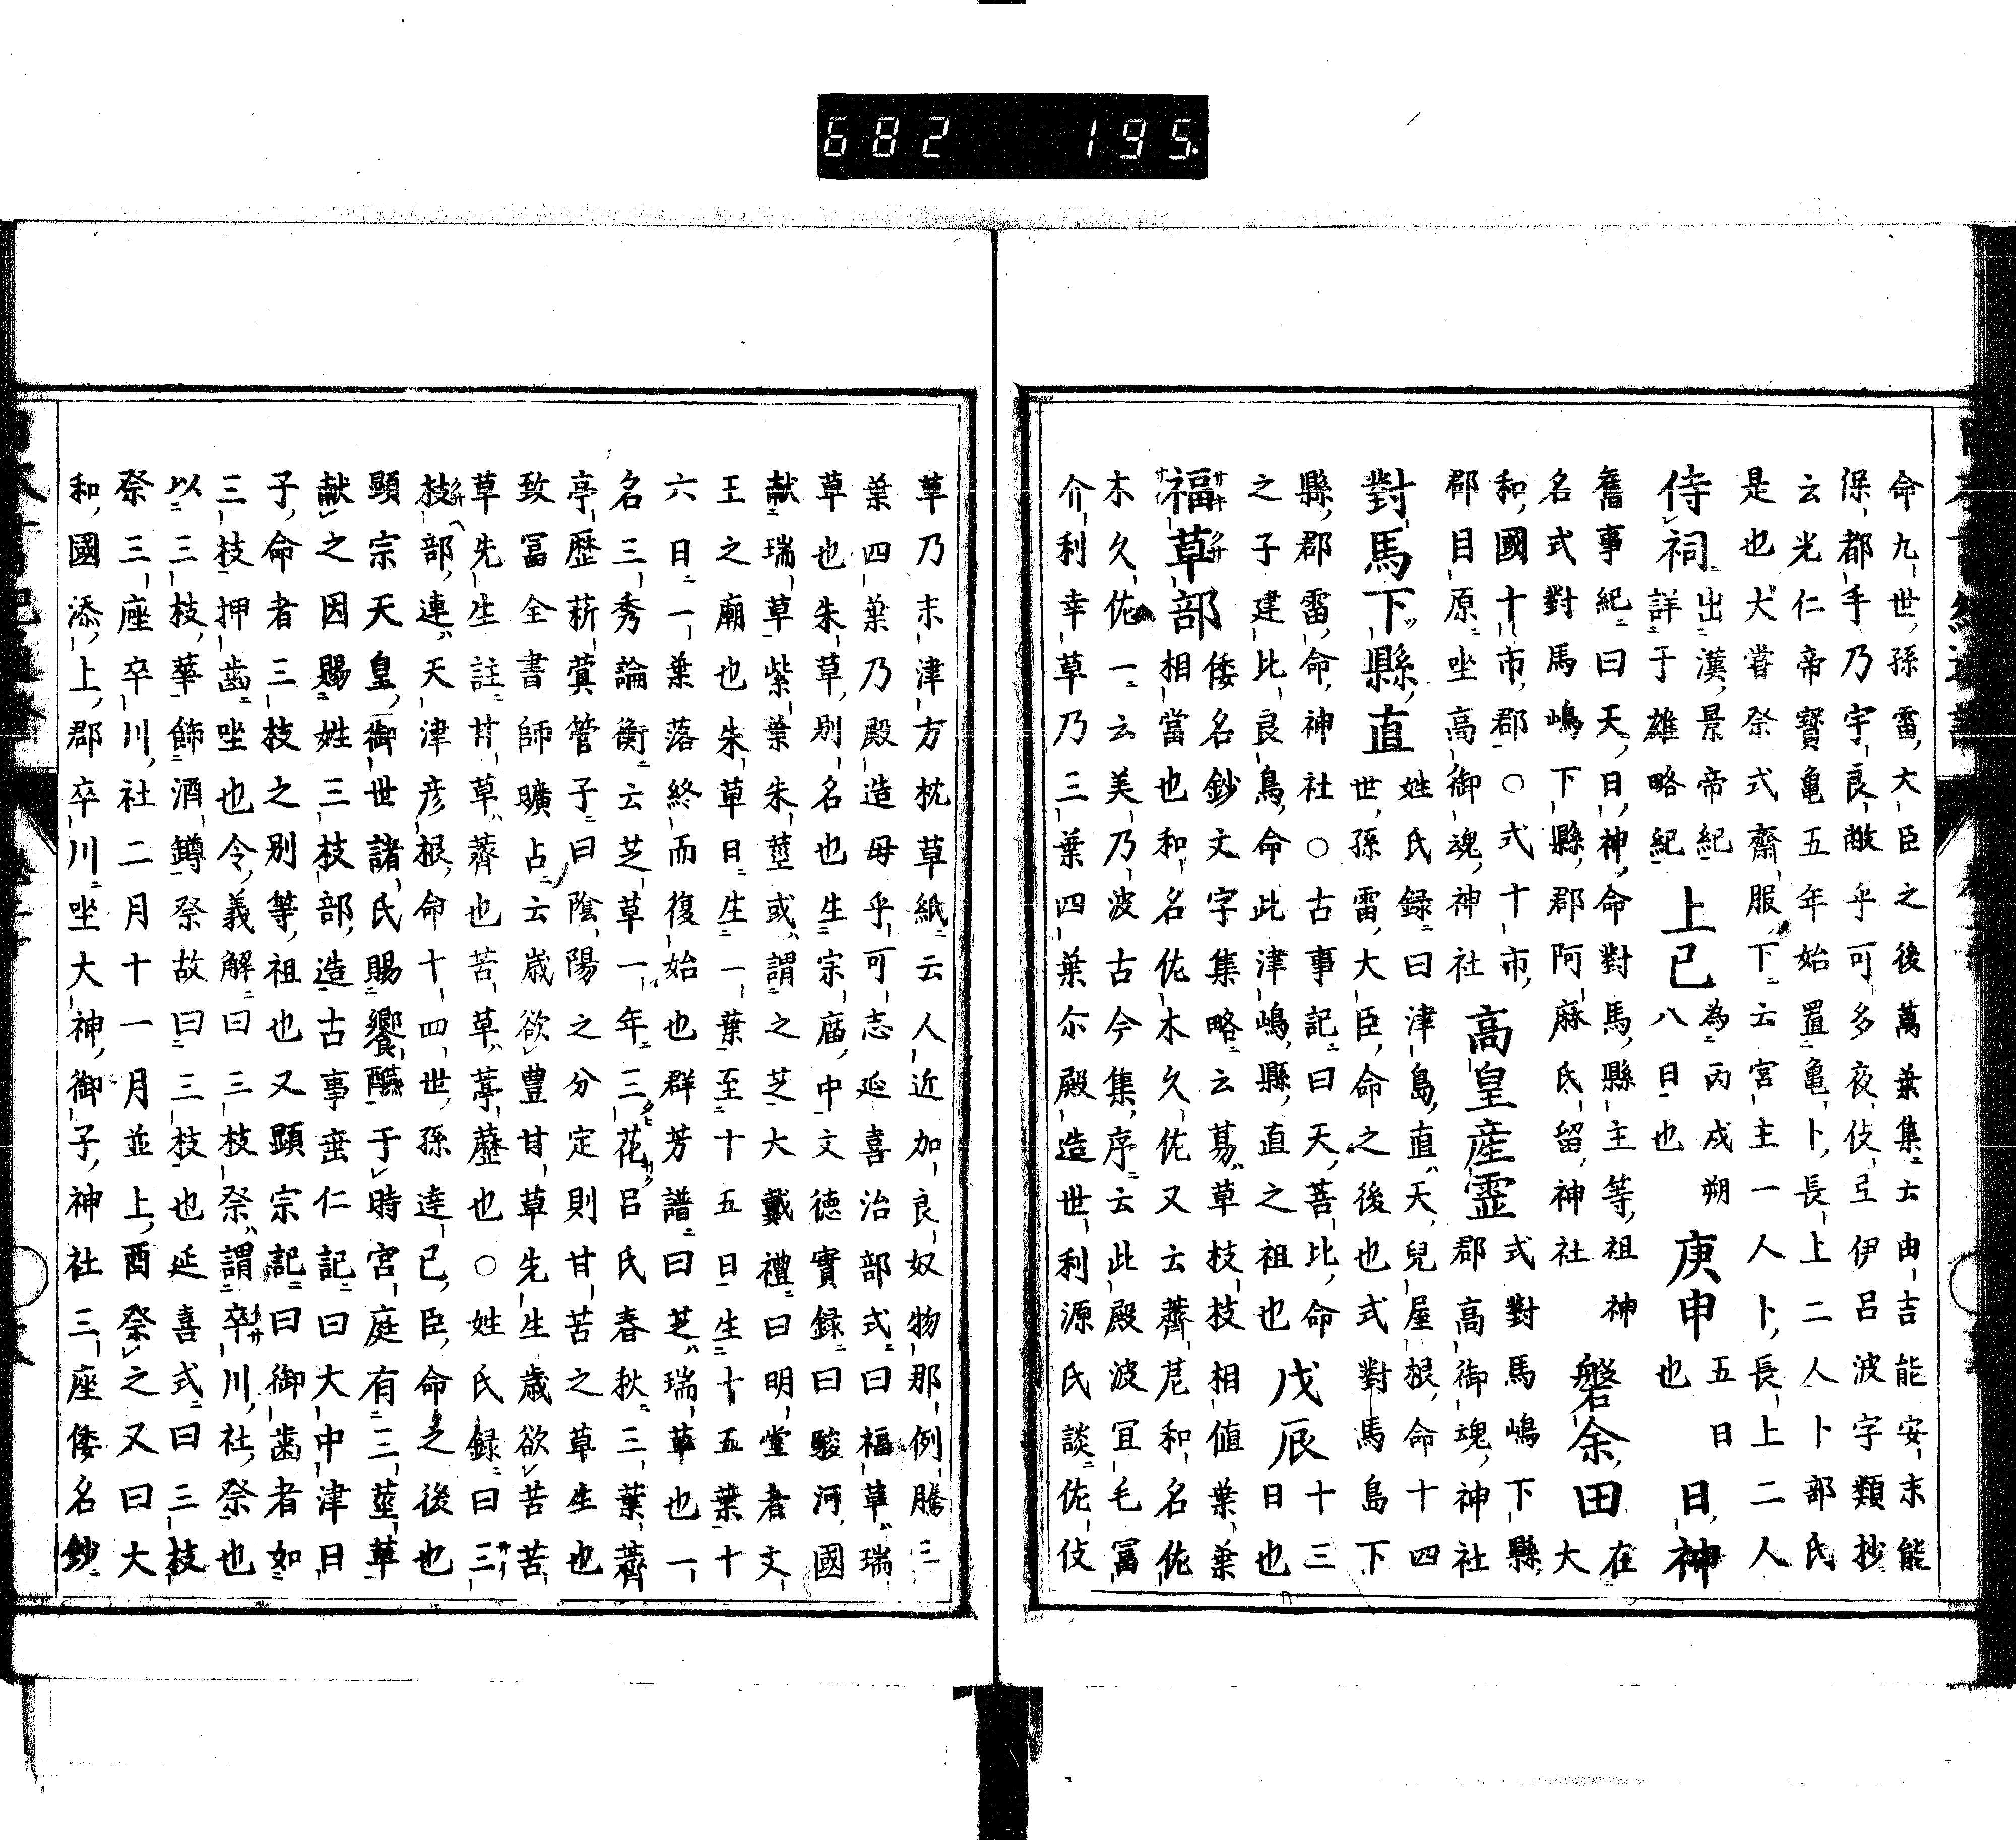 682 195.
命九世孫雷大臣之後萬葉集云由吉能安末能
保都手乃宇良敝乎可多夜伎弖伊呂波字類抄
云光仁帝寳亀五年始置亀卜長上二人卜部氏
是也大嘗祭式齋服下云宮主一人卜長上二人
侍祠 出漢景帝紀
詳于雄略紀 上巳 為丙戌朔
八日也 庚申 五日
也 日神
舊事紀曰天日神命對馬縣主等祖神
名式對馬嶋下縣郡阿麻氐留神社 磐余田 在
大
和國十市郡○式十市
郡目原坐高御魂神社 高皇産霊 式對馬嶋下縣
郡高御魂神社
對馬下縣直 姓氏録曰津島直天兒屋根命十四
世孫雷大臣命之後也式對馬島下
縣郡雷命神社○古事記曰天菩比命
之子建比良鳥命此津嶋縣直之祖也 戊辰 十三
日也
福草部 倭名鈔文字集略云葛草枝枝相値葉葉
相當也和名佐木久佐又云薺苨和名佐
木久佐一云美乃波古今集序云此殿波冝毛冨
介利幸草乃三葉四葉尒殿造世利源氏談佐伎
草乃末津方枕草紙云人近加良奴物那例騰三
葉四葉乃殿造毋乎可志延喜治部式曰福草瑞
草也朱草別名也生宗庿中文德實録曰駿河國
献瑞草紫葉朱莖或謂之芝大戴禮曰明堂者文
王之廟也朱草日生一葉至十五日生十五葉十
六日一葉落終而復始也群芳譜曰芝瑞草也一
名三秀論衡云芝草一年三花呂氏春秋三葉薺
亭歴菥蓂管子曰陰陽之分定則甘苦之草生也
致冨全書師曠占云歳欲豊甘草先生歳欲苦苦
草先生註甘草薺也苦草葶藶也○姓氏録曰三
枝部連天津彦根命十四世孫達己臣命之後也
顕宗天皇御世諸氏賜饗醼于時宮庭有三莖草
献之因賜姓三枝部造古事埀仁記曰大中津日
子命者三枝之別等祖也又顕宗記曰御歯者如
三枝押歯坐也令義解曰三枝祭謂卒川社祭也
以三枝華飾酒罇祭故曰三枝也延喜式曰三枝
祭三座卒川社二月十一月並上酉祭之又曰大
和國添上郡卒川坐大神御子神社三座倭名鈔